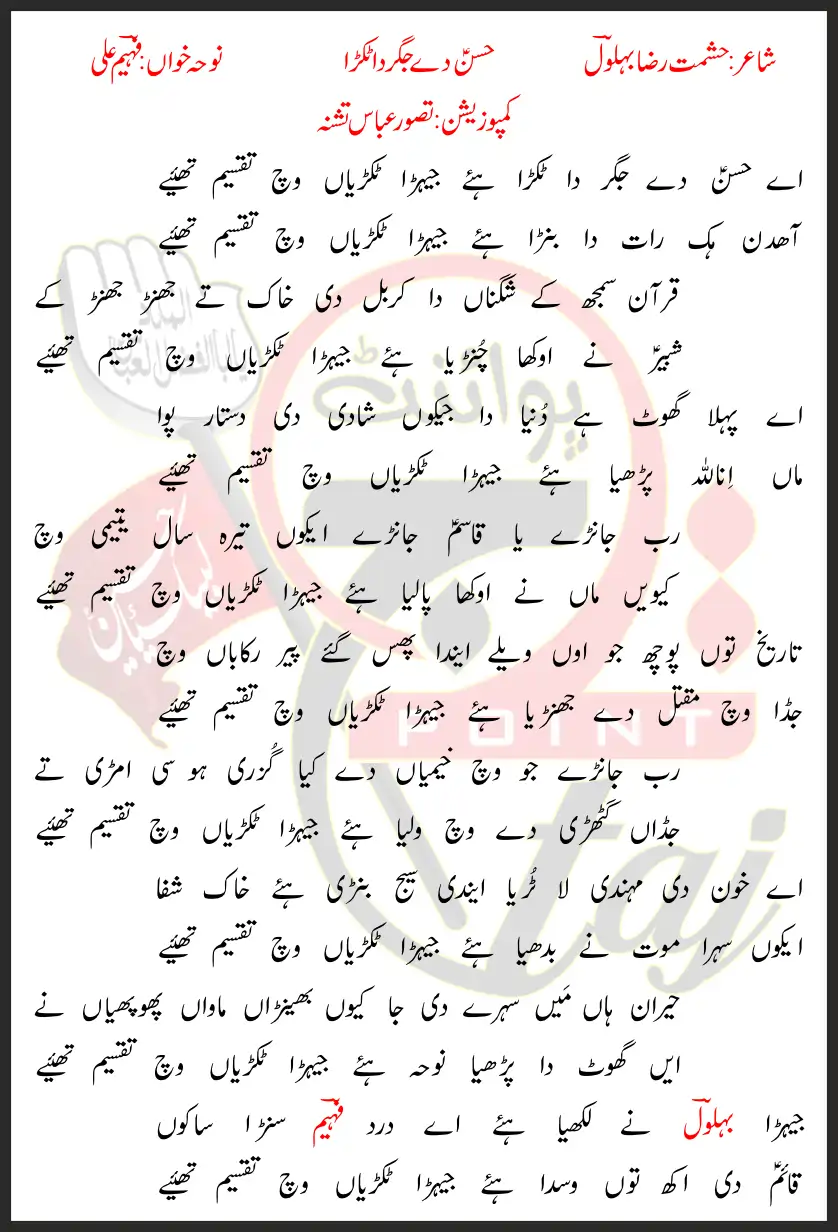 شاعر: حشمت رضا بہلولؔ حسنؑ دے جگر دا ٹکڑا نوحہ خواں: فہیمؔ علی
کمپوزیشن: تصور عباس تشنہ
اے حسنؑ دے جگر دا ٹکڑا ہئے جیہڑا ٹکڑیاں وچ تقسیم تھئیے
آھدن ہک رات دا بنڑا ہئے جیہڑا ٹکڑیاں وچ تقسیم تھئیے
قرآن سمجھ کے شگناں دا کربل دی خاک تے جھنڑ جھنڑ کے
شبیرؑ نے اوکھا چُنڑیا ہئے جیہڑا ٹکڑیاں وچ تقسیم تھئیے
اے پہلا گھوٹ ہے دُنیا دا جیکوں شادی دی دستار پوا
ماں اِناللہ پڑھیا ہئے جیہڑا ٹکڑیاں وچ تقسیم تھئیے
رب جانڑے یا قاسمؑ جانڑے ایکوں تیرہ سال یتیمی وچ
کیویں ماں نے اوکھا پالیا ہئے جیہڑا ٹکڑیاں وچ تقسیم تھئیے
تاریخ توں پوچھ جو اوں ویلے ایندا پھس گئے پیر رکاباں وچ
جڈا وچ مقتل دے جھنڑیا ہئے جیہڑا ٹکڑیاں وچ تقسیم تھئیے
رب جانڑے جو وچ خیمیاں دے کیا گُزری ہو سی امڑی تے
جڈاں گٹھڑی دے وچ ولیا ہئے جیہڑا ٹکڑیاں وچ تقسیم تھئیے
اے خون دی مہندی لا ٹُریا ایندی سیج بنڑی ہئے خاک شفا
ایکوں سہرا موت نے بدھیا ہئے جیہڑا ٹکڑیاں وچ تقسیم تھئیے
حیران ہاں مَیں سہرے دی جا کیوں بھینڑاں ماواں پھوپھیاں نے
ایں گھوٹ دا پڑھیا نوحہ ہئے جیہڑا ٹکڑیاں وچ تقسیم تھئیے
جیہڑا بہلولؔ نے لکھیا ہئے اے درد فہیمؔ سنڑا ساکوں
قائمؑ دی اکھ توں وسدا ہئے جیہڑا ٹکڑیاں وچ تقسیم تھئیے
پوائنٹ
تاج
POINT
taj